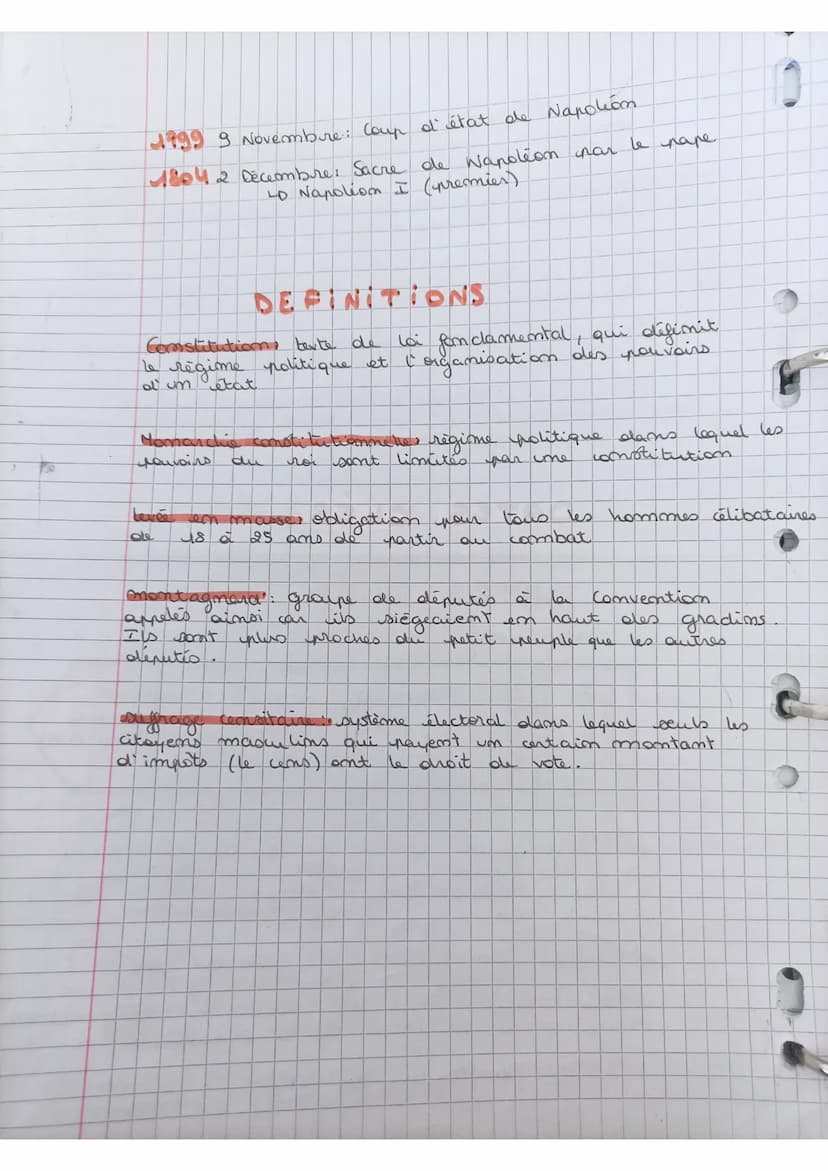 1799 9 Novembre: Coup d'état de Napoléon
1804 2 Décembre: Sacre de Napoléon par le pape
↳ Napoléon I (premier)
DEFINITIONS
Constitution: texte de loi fondamental, qui définit
le régime politique et l'organisation des pouvoirs
d'un état
Monarchie constitutionnelle: régime politique dans lequel les
pouvoirs du roi sont limités par une constitution
levée en masse: obligation pour tous les hommes célibataires
de 18 à 25 ans de partir au combat
montagnard: groupe de députés à la Convention
appelés ainsi car ils siègeaient en haut des gradins.
Ils sont plus proches du petit peuple que les autres
députés.
suffrage censitaire: système électoral dans lequel seuls les
citoyens masculins qui payent un certain montant
d'impôts (le cens) ont le droit de vote.